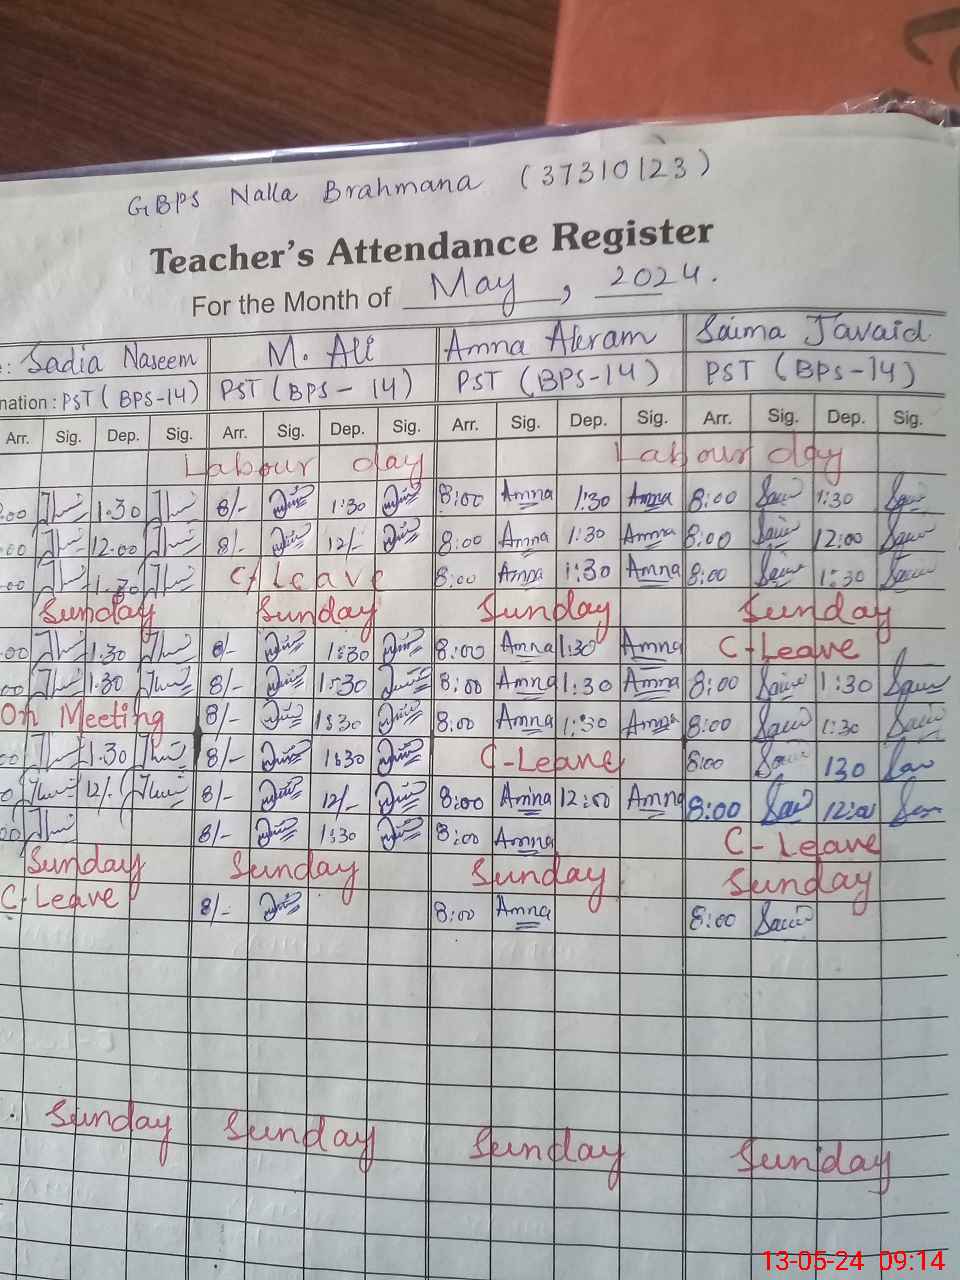 GBPS Nalla Brahmana (37310123)
Teacher's Attendance Register
For the Month of May, 2024.
: Sadia Naseem M. Ali Amna Akram Saima Javaid
nation : PST (BPS-14) PST (BPS-14) PST (BPS-14) PST (BPS-14)
Arr. Sig. Dep. Sig. Arr. Sig. Dep. Sig. Arr. Sig. Dep. Sig. Arr. Sig. Dep. Sig.
Labour day Labour day
.00 1.30 8/- 1:30 8:00 Amna 1:30 Amna 8:00 1:30
00 12.00 8/- 12/- 8:00 Amna 1:30 Amna 8:00 12:00
00 1.30 C-Leave 8:00 Amna 1:30 Amna 8:00 1:30
Sunday Sunday Sunday Sunday
00 1.30 8/- 1:30 8:00 Amna 1:30 Amna C-Leave
00 1.30 8/- 1:30 8:00 Amna 1:30 Amna 8:00 1:30
On Meeting 8/- 1:30 8:00 Amna 1:30 Amna 8:00 1:30
00 1.30 8/- 1:30 C-Leave 8:00 130
0 12/- 8/- 12/- 8:00 Amna 12:00 Amna 8:00 12:00
00 8/- 1:30 8:00 Amna C-Leave
Sunday Sunday Sunday Sunday
C-Leave 8/- 8:00 Amna 8:00
Sunday Sunday Sunday Sunday
13-05-24 09:14